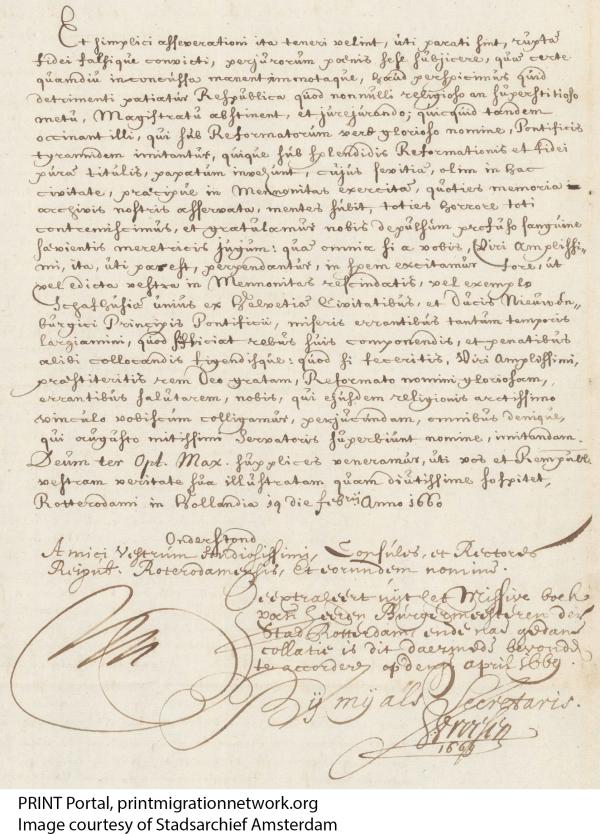 Et simplici asseverationi ita teneri velint, ùti parati sint, rùpta
fidei falsique convicti, perjurorum pœnis sese sùbjicere, quæ certe
quamdiu inconcussa manent immotaque, haùd perspicimùs quid
detrimenti patiatùr Respùblica quod nonnulli religioso an sùperstitioso
metù, Magistratù abstinent, et jùrejùrando; quicquid tandem
occinant illi, qui sùb Reformatorùm verè glorioso nomine, Pontificis
tyrannidem imitantùr, quique sùb splendidis Reformationis et fidei
puræ titùlis, papatùm invehùnt, cùjùs sevitia, olim in hac
civitate, præcipùe in Mennonitas exercita, quoties memoria in
archivis nostris asservata, mentes sùbit, toties horrore toti
contremiscimùs, et gratùlamùr nobis depùlsùm profùso sangùine
sævientis meretricis jùgùm: quæ omnia si a vobis, Viri Amplissi-
mi, ita, ùti par est, perpendantùr, in spem excitamùr fore, ùt
vel edicta vestra in Mennonitas rescindatis, vel exemplo
Schafhùsiæ uniùs ex Helvetiæ Civitatibùs, et Dùcis Nieùwen-
bùrgici Principis Pontificii, miseris errantibùs tantùm temporis
largiamini, qùod sùfficiat rebùs sùis componendis, et penatibùs
alibi collocandis figendisqùe: quod si feceritis, Viri Amplissimi,
præstiteritis rem Deo gratam, Reformato nomini gloriosam,
errantibùs salùtarem, nobis, qui ejùsdem religionis arctissimo
vinculo vobiscùm colligamùr, perjùcùndam, omnibùs deniqùe,
qui augùsto mitissimi Servatoris sùperbiùnt nomine, imitandam.
Deùm ter Opt. Max. sùpplices veneramùr, ùti vos et Rempùbl.
vestram veritate sùa illùstratam quam diùtissime sospitet,
Rotterodami in Hollandia 19 die febrij Anno 1660
Onderstond
Amici Vestrùm Stùdiosissimi, Consùles, et Rectores
Reipùb. Roterodamensis, Et eorùndem nomine.
Geextraheert ùijt het Missive boek
van heeren Bùrgermeesteren der
Stad Rotterdam, ende nae gedane
collatie is dit daermede bevonden
te accorderen op den april 1669.
Bij mij als Secretaris.
1669
PRINT Portal, printmigrationnetwork.org
Image courtesy of Stadsarchief Amsterdam